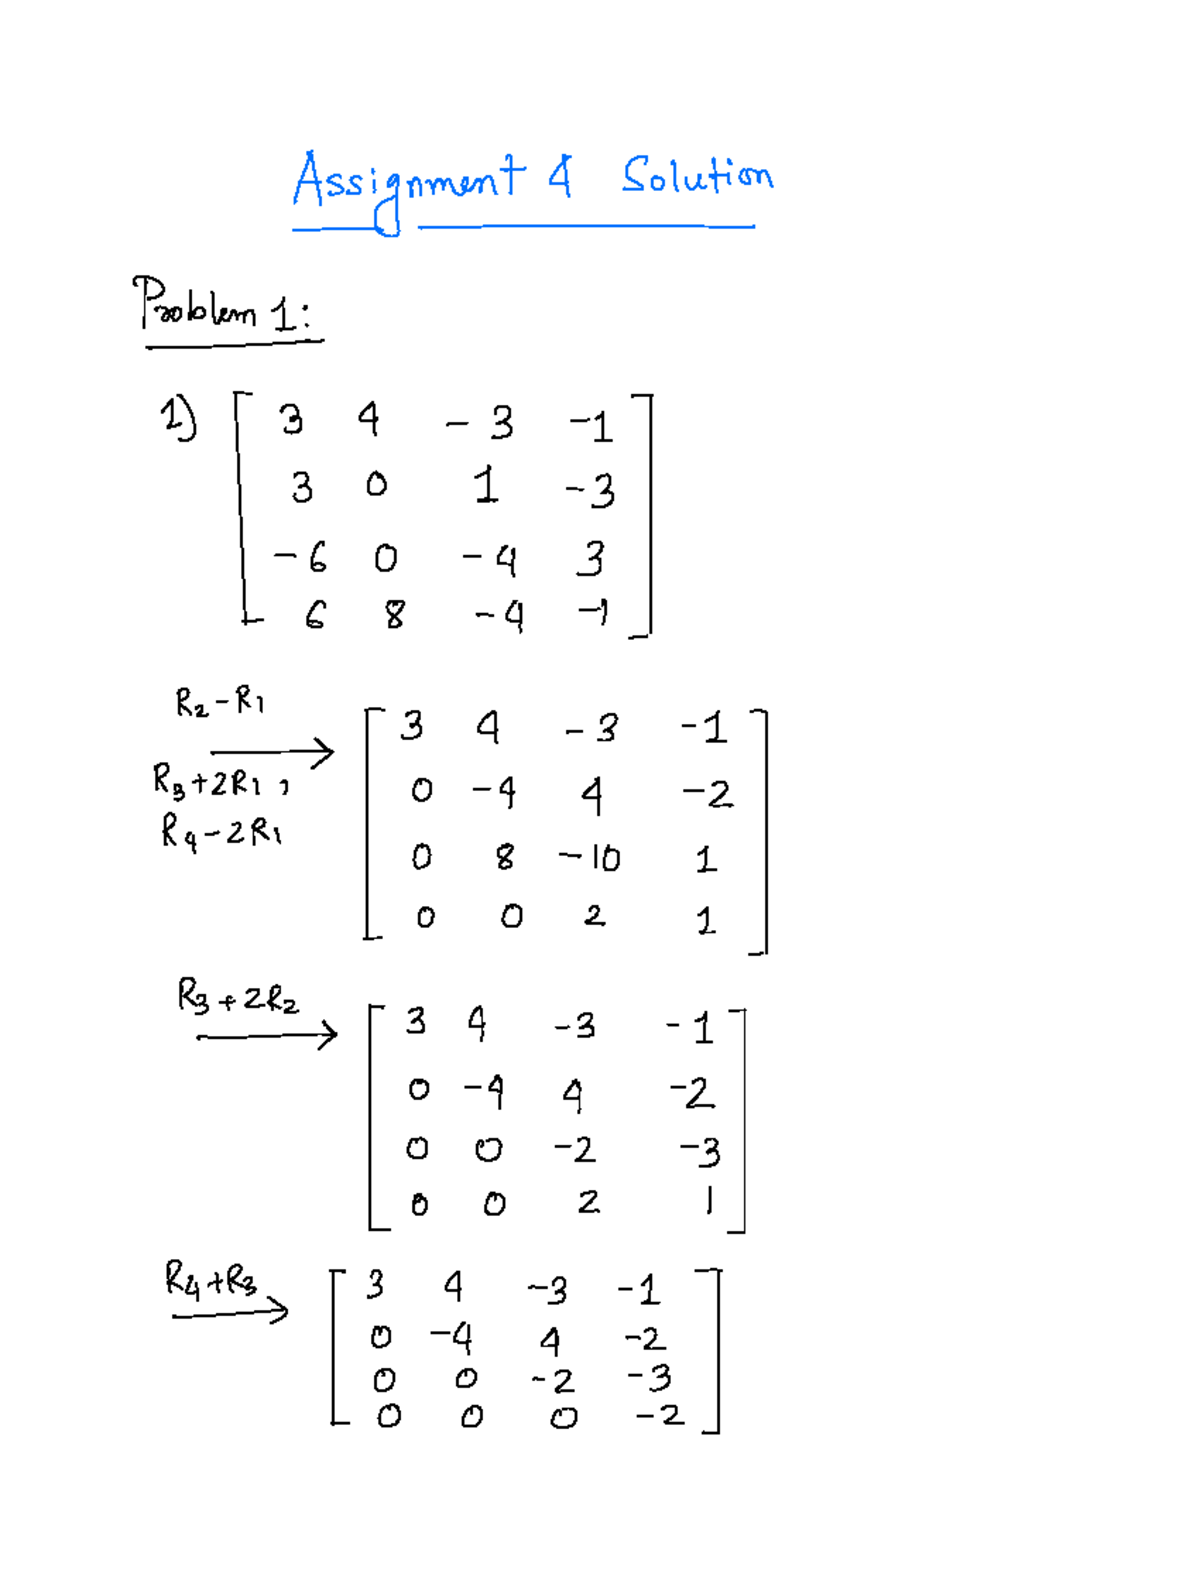 Assignment 4 Solution
Problem 1:
1) [ 3 4 -3 -1
3 0 1 -3
-6 0 -4 3
6 8 -4 -1 ]
R2-R1
R3+2R1,
R4-2R1
→
[ 3 4 -3 -1
0 -4 4 -2
0 8 -10 1
0 0 2 1 ]
R3+2R2
→
[ 3 4 -3 -1
0 -4 4 -2
0 0 -2 -3
0 0 2 1 ]
R4+R3
→
[ 3 4 -3 -1
0 -4 4 -2
0 0 -2 -3
0 0 0 -2 ]